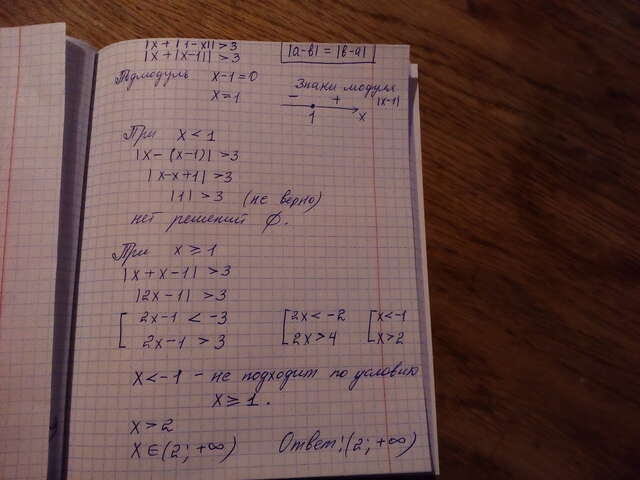 |x+|1-x||>3
|x+|x-1||>3
|a-b| = |b-a|
Подмодуль x-1=0
x=1
Знаки модуля
- + |x-1|
1 x
При x<1
|x-(x-1)|>3
|x-x+1|>3
|1|>3 (не верно)
нет решений ∅.
При x≥1
|x+x-1|>3
|2x-1|>3
[ 2x-1 < -3 [ 2x<-2 [ x<-1
2x-1 > 3 2x>4 x>2
x<-1 - не подходит по условию
x≥1.
x>2
x∈(2; +∞) Ответ: (2; +∞)